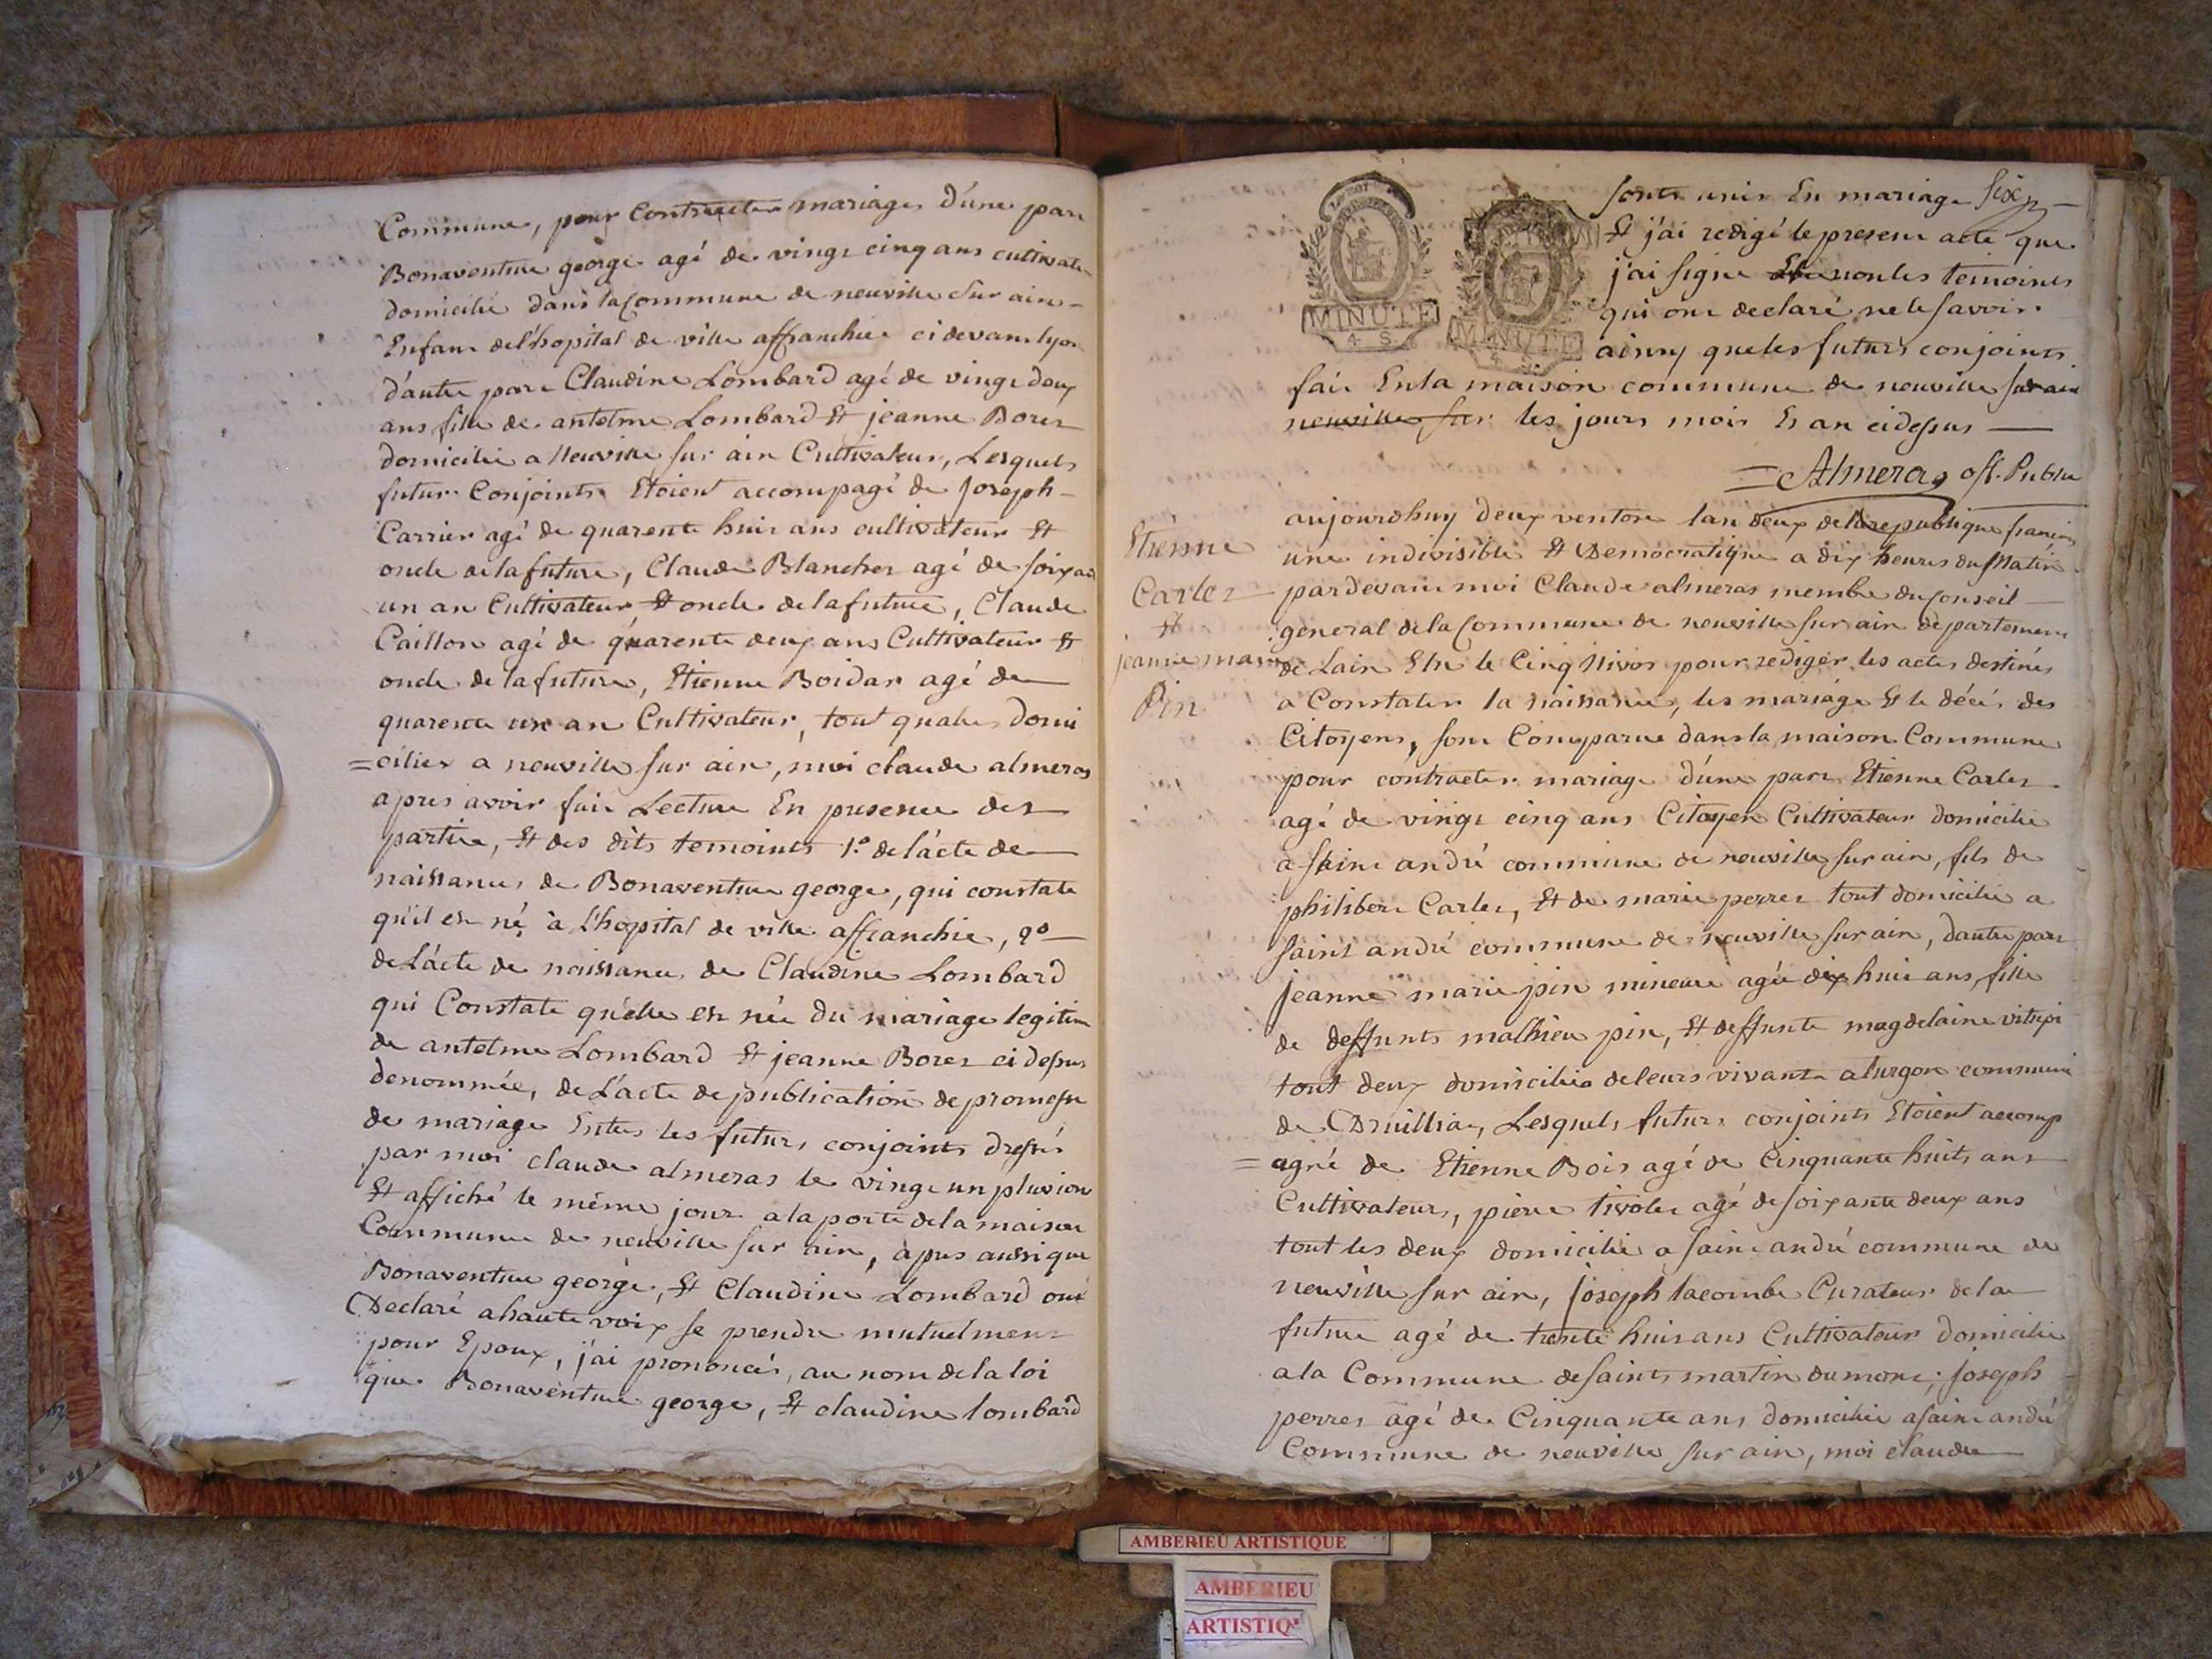 Commune, pour Contracter mariage, d'une part
Bonaventure george agé de vingt cinq ans cultivateur
domicilié dans la Commune de neuville sur ain -
Enfant de l'hopital de ville affranchie ci devant lyon
d'autre part Claudine Lombard agé de vingt deux
ans fille de antelme Lombard Et jeanne Boret
domicilié a Neuville sur ain Cultivateur, Lesquels
futur Conjoints Etoient accompagé de Joseph -
Carrier agé de quarente huit ans cultivateur Et
oncle de la future, Claude Blanchet agé de soixante
un an Cultivateur Et oncle de la future, Claude
Caillon agé de quarente deux ans Cultivateur Et
oncle de la future, Etienne Boidar agé de
quarente un an Cultivateur, tout quatre domi
=ciliés a neuville sur ain, moi claude almeras
apres avoir fait Lecture En presence des
partie, Et des dits temoints 1.º de l'acte de
naissance de Bonaventure george, qui constate
qu'il est né à l'hopital de ville affranchie, 2º
de L'acte de naissance de Claudine Lombard
qui Constate qu'elle est née du mariage legitime
de antelme Lombard Et jeanne Boret ci dessus
denommée, de L'acte de publication de promesse
de mariage Entre les futurs conjoints dressé
par moi claude almeras le vingt un pluviose
Et affiché le même jour a la porte de la maison
Commune de neuville sur ain, apres aussi que
Bonaventure george, Et Claudine Lombard ont
Declaré a haute voix se prendre mutuelment
pour Epoux, j'ai prononcés, au nom de la loi
que Bonaventure george, Et claudine lombard
MINUTE
4 S
MINUTE
4 S
sonts unis En mariage
Et j'ai redigé le present acte que
j'ai signe non les temoints
qui ont declaré ne le savoir
ainsy que les futurs conjoints
fait En la maison commune de neuville sur ain
neuville sur les jours mois Et an ci dessus
=Almeras off. Public
Etienne
Carlet
Et
jeanne marie
Pin
aujourdhuy deux ventose lan deux de la republique francaise
une indivisible Et Democratique a dix heures du Matin
pardevant moi Claude almeras membre du Conseil
general de la Commune de neuville sur ain departement
de Lain Elu le Cinq Nivos pour rediger les actes destinés
a Constater la naissance, les mariage Et le décés des
Citoyens, sont Comparue dans la maison Commune
pour contracter mariage d'une part Etienne Carlet
agé de vingt cinq ans Citoyen Cultivateur domicilié
a saint andré commune de neuville sur ain, fils de
philibert Carlet, Et de marie perret tout domicilié a
saint andré commune de neuville sur ain, dautre part
jeanne marie pin mineure agée dix huit ans, fille
de deffunts mathieu pin, Et deffunte magdelaine
tout deux domiciliés de leurs vivants a turgon commune
de Druillia, Lesquels futurs conjoints Etoient accomp
=agné de Etienne Bois agé de Cinquante huits ans
Cultivateurs, piere tivolet agé de soixante deux ans
tout les deux domicilié a saint andré commune de
neuville sur ain, joseph lacombe Curateur de la
future agé de trente huit ans Cultivateur domicilié
a la Commune de saints martin du mont, joseph
perret agé de Cinquante ans domicilié a saint andré
Commune de neuville sur ain, moi claude
AMBERIEU ARTISTIQUE
AMBERIEU
ARTISTIQ